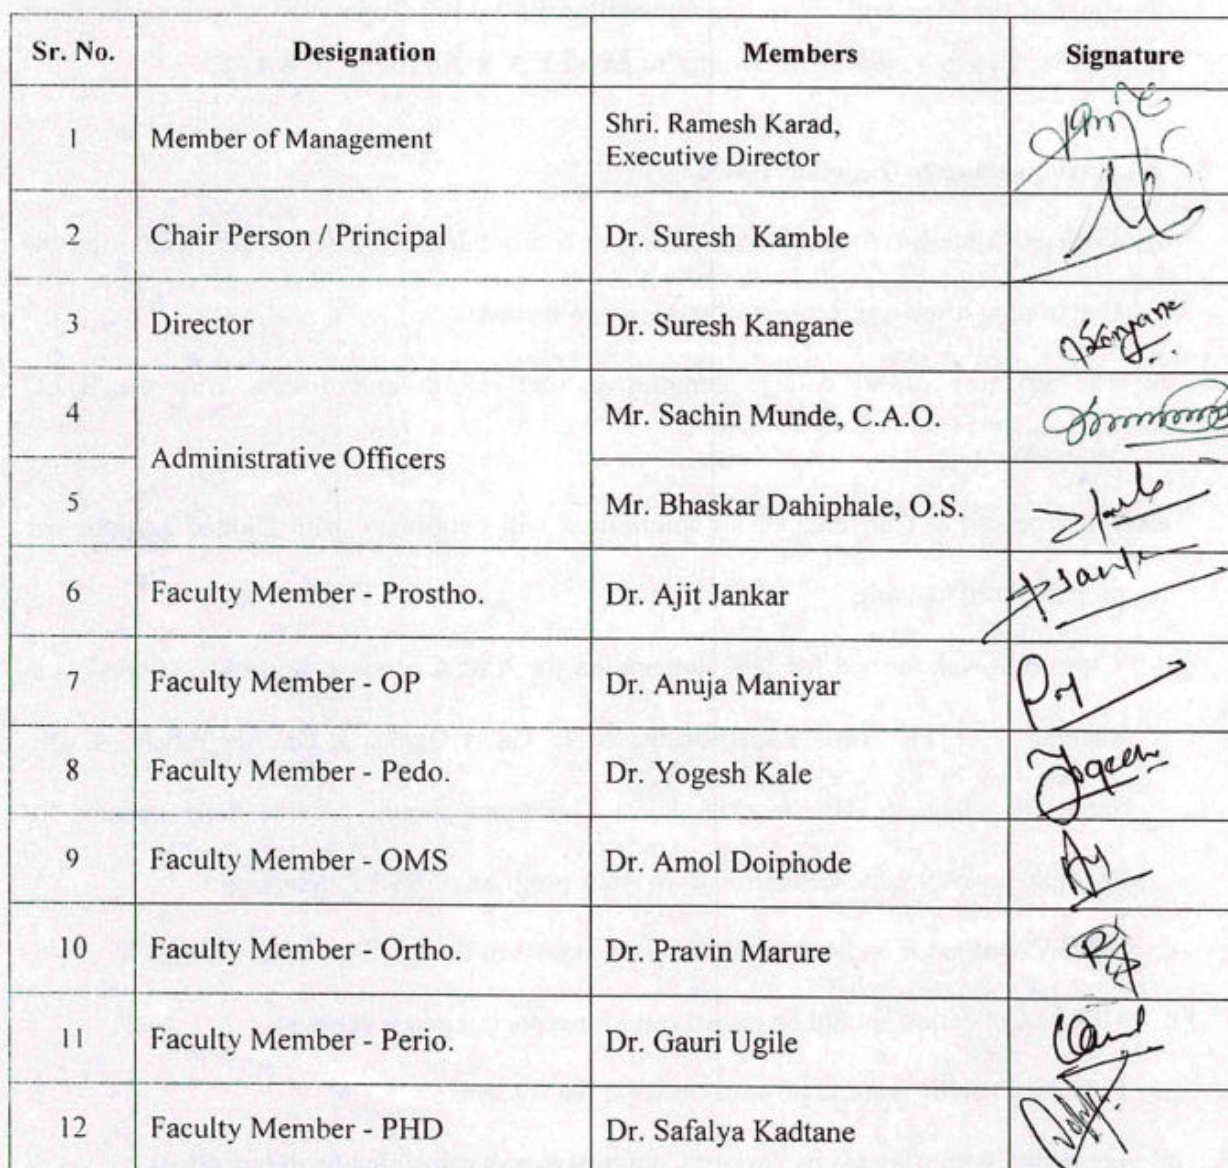 Sr. No. Designation Members Signature
1 Member of Management Shri. Ramesh Karad,
Executive Director
2 Chair Person / Principal Dr. Suresh Kamble
3 Director Dr. Suresh Kangane
4 Mr. Sachin Munde, C.A.O.
Administrative Officers
5 Mr. Bhaskar Dahiphale, O.S.
6 Faculty Member - Prostho. Dr. Ajit Jankar
7 Faculty Member - OP Dr. Anuja Maniyar
8 Faculty Member - Pedo. Dr. Yogesh Kale Yogesh
9 Faculty Member - OMS Dr. Amol Doiphode
10 Faculty Member - Ortho. Dr. Pravin Marure
11 Faculty Member - Perio. Dr. Gauri Ugile
12 Faculty Member - PHD Dr. Safalya Kadtane